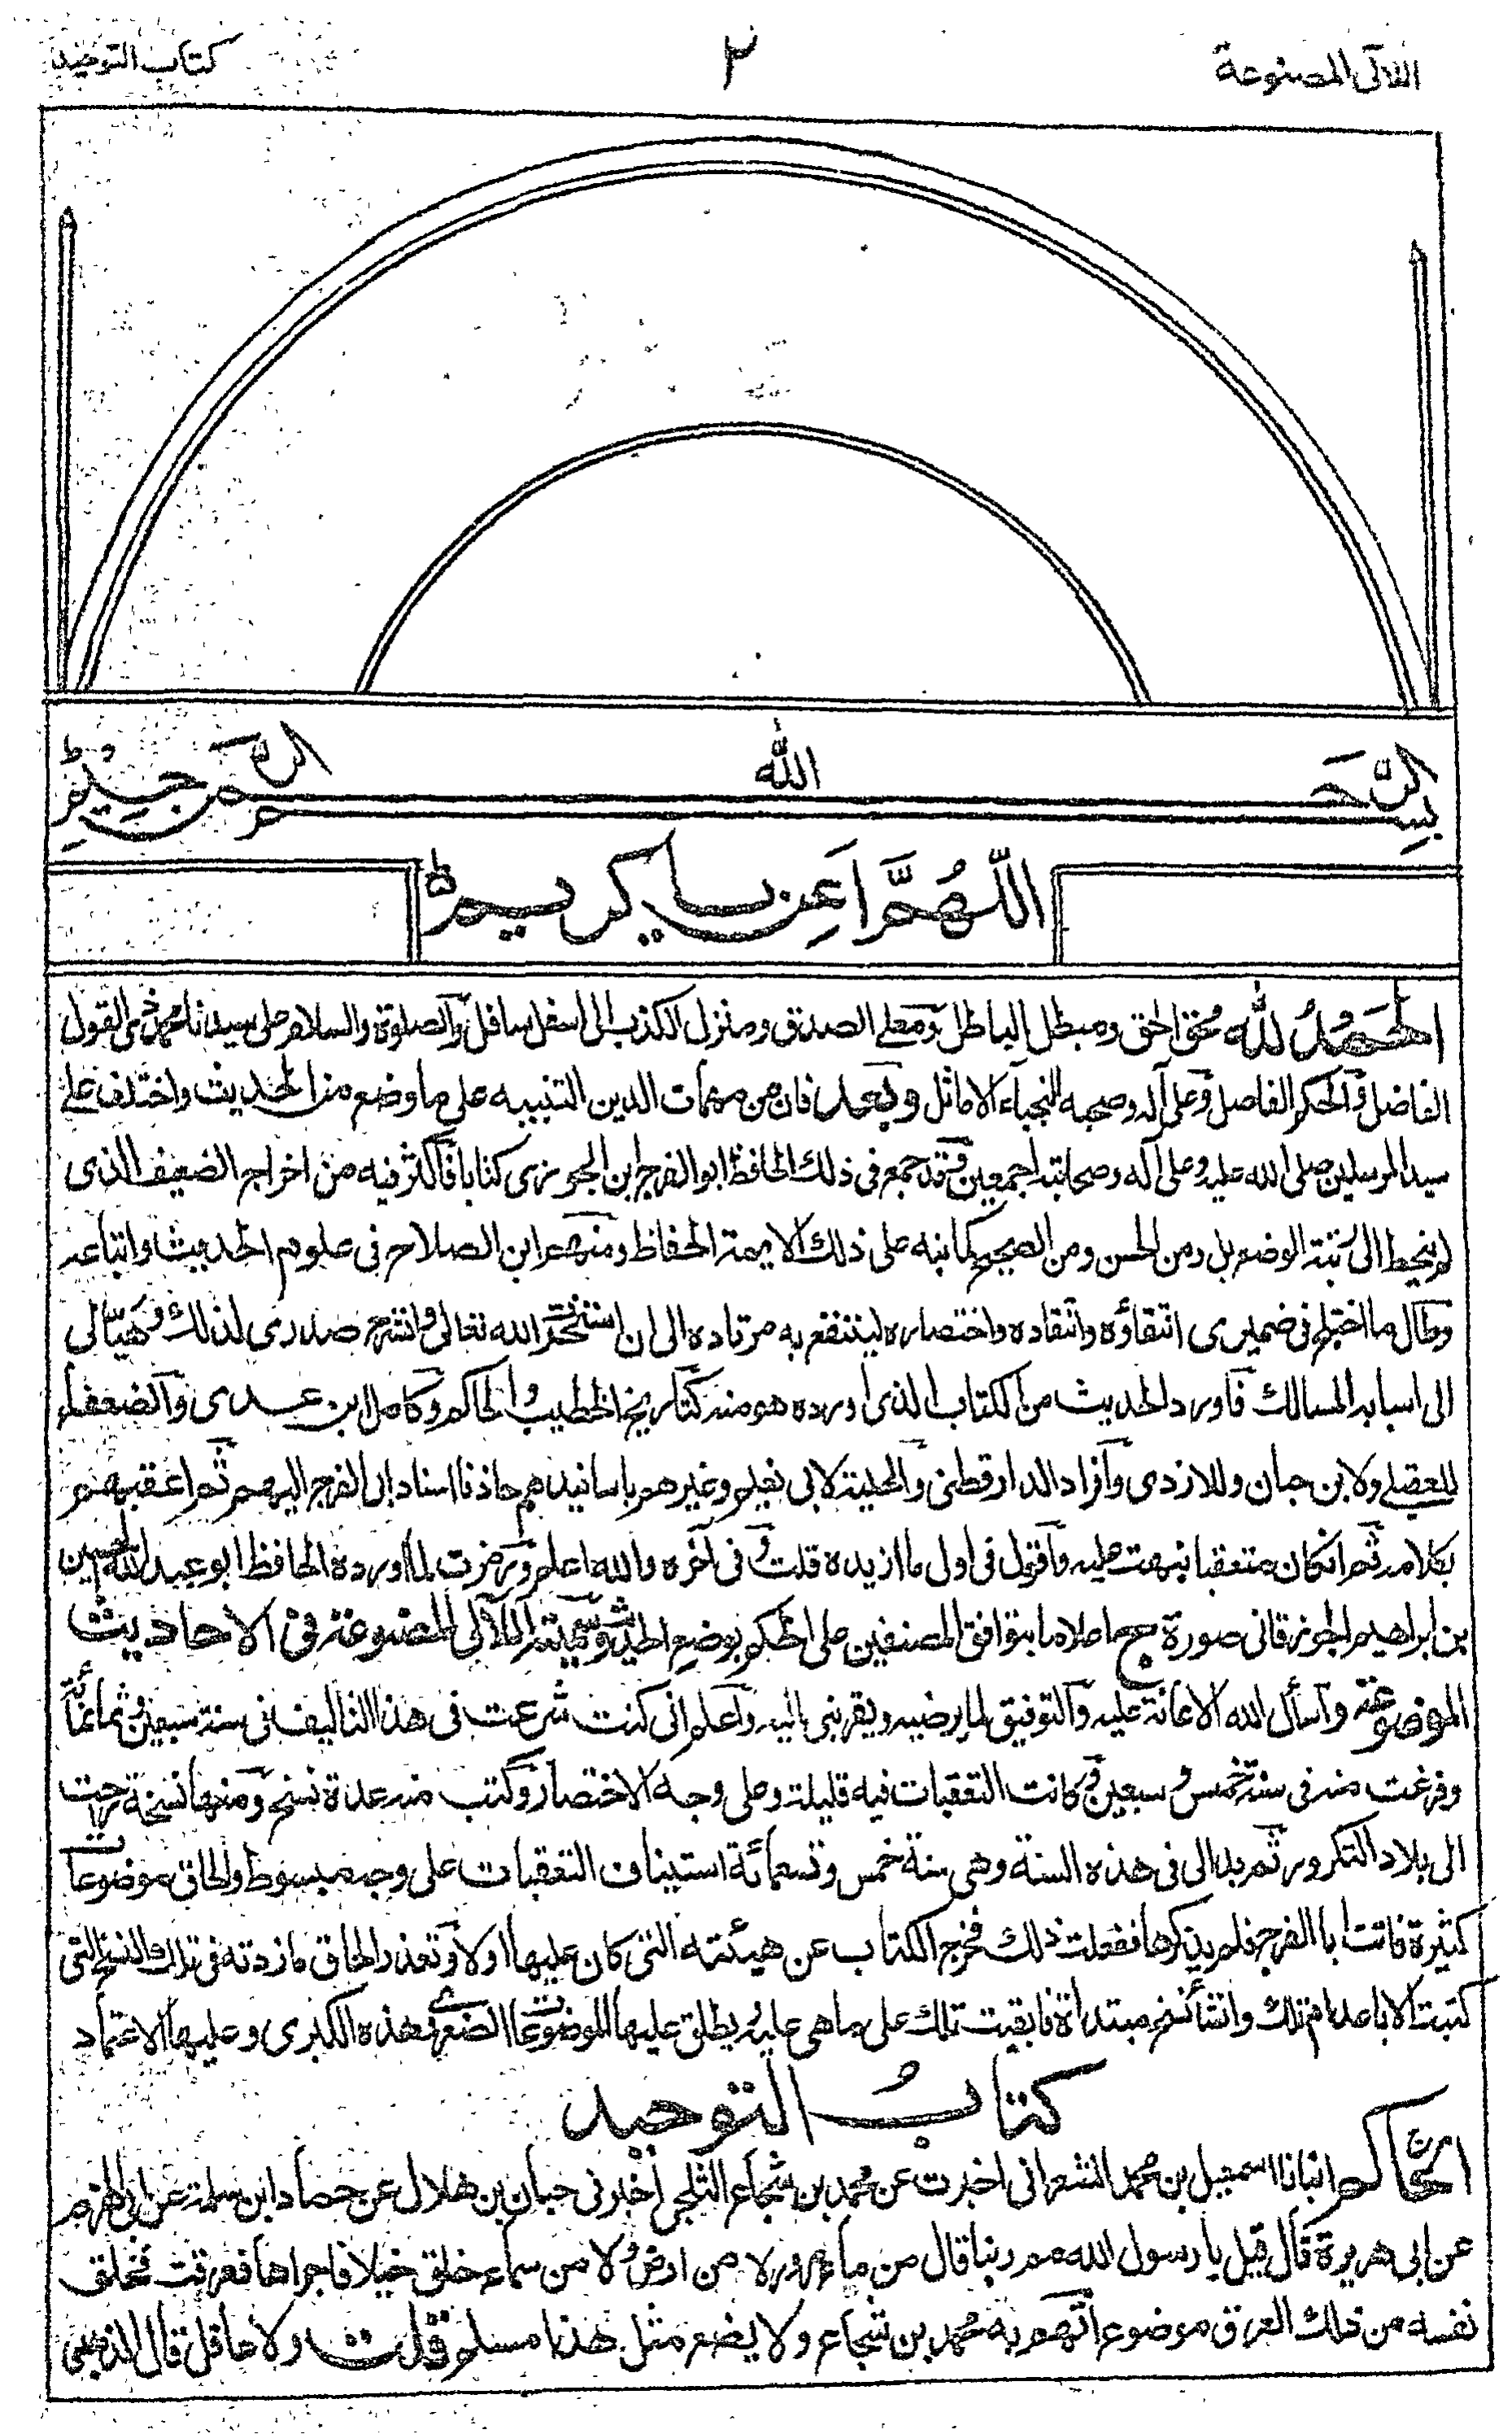 اللآلی المصنوعة
٢
كتاب التوحيد
بسم الله الرحمن الرحيم
اللهم اعن يا كريم
الحمد لله محق الحق ومبطل الباطل ومعلي الصدق ومنزل الكذب الى اسفل سافل والصلوة والسلام على سيدنا محمد ذي القول
الفاضل والحكم الفاصل وعلى آله وصحبه النجباء الاماثل وبعد فان من مهمات الدين التنبيه على ما وضع من الحديث واختلف على
سيد المرسلين صلى الله عليه وعلى آله وصحابته اجمعين وقد جمع في ذلك الحافظ ابو الفرج ابن الجوزي كتابا فاكثر فيه من اخراج الضعيف الذى
لم ينحط الى رتبة الوضع بل ومن الحسن ومن الصحيح كما نبه على ذلك الايمة الحفاظ ومنهم ابن الصلاح فى علوم الحديث واتباعه
وطال ما اختلج فى ضميرى انتقاؤه وانتقاده واختصاره لينتفع به مرتاده الى ان استخرت الله تعالى وانشرح صدرى لذلك وهيألى
الى اسبابه المسالك فاورد الحديث من الكتاب الذى اورده هو منه كتاريخ الخطيب والحاكم وكامل ابن عدى والضعفاء
للعقيلي ولابن حبان وللازدى وافراد الدارقطنى والحلية لابى نعيم وغيرهم باسانيدهم حاذفا اسناد ابى الفرج اليهم ثم اعقبهم
بكلامه ثم انكان متعقبا نبهت عليه واقول فى اول ما ازيده قلت وفى آخره والله اعلم ورمزت لما اورده الحافظ ابو عبد الله الحسين
بن ابراهيم الجوزقانى صورة ج اعلاما بتوافق المصنفين على الحكم بوضع الحديث وسميته اللآلى المصنوعة فى الاحاديث
الموضوعة وأسأل الله الاعانة عليه والتوفيق لما يرضيه ويقربنى اليه واعلم انى كنت شرعت فى هذا التاليف فى سنة سبعين وثمانمائة
وفرغت منه فى سنة خمس وسبعين وكانت التعقبات فيه قليلة وعلى وجه الاختصار وكتب منه عدة نسخ ومنها نسخة راحت
الى بلاد التكرور ثم بدا لى فى هذه السنة وهى سنة خمس وتسعمائة استيناف التعقبات على وجه مبسوط والحاق موضوعات
كثيرة فاتت ابا الفرج فلم يذكرها ففعلت ذلك فخرج الكتاب عن هيئته التى كان عليها اولا وتعذر الحاق ما زدته فى تلك النسخ التى
كتبت الا باعدام تلك وانشأ نسخ مبتدأة فابقيت تلك على ما هى عليه ويطلق عليها الموضوعات الصغرى وهذه الكبرى وعليها الاعتماد
كتاب التوحيد
الحاكم انبانا اسمعيل بن محمد الشعرانى اخبرت عن محمد بن شجاع الثلجى اخبرنى حبان بن هلال عن حماد ابن سلمة عن ابى المهزم
عن ابى هريرة قال قيل يا رسول الله مم ربنا قال من ماء مرور لا من ارض ولا من سماء خلق خيلا فاجراها فعرقت فخلق
نفسه من ذلك العرق موضوع اتهم به محمد بن شجاع ولا يضع مثل هذا مسلم قلت ولا عاقل قال الذهبى